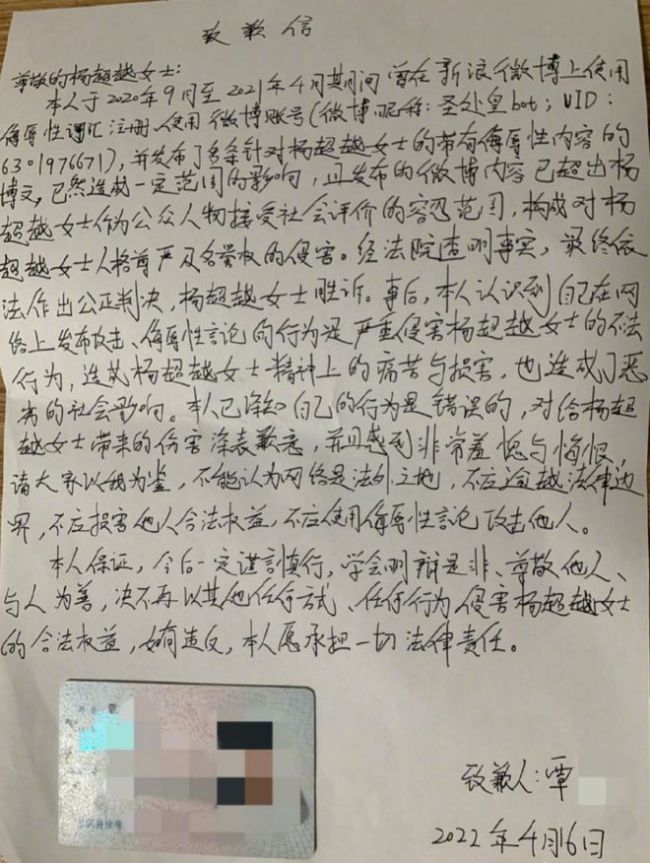 致歉信
尊敬的杨超越女士:
本人于2020年9月至2021年4月期间曾在新浪微博上使用
侮辱性词汇注册、使用微博账号(微博昵称:圣处皇bot;UID:
6301976671),并发布了多条针对杨超越女士的带有侮辱性内容的
博文,已然造成一定范围的影响,且发布的微博内容已超出杨
超越女士作为公众人物接受社会评价的容忍范围,构成对杨
超越女士人格尊严及名誉权的侵害。经法院查明事实,最终依
法作出公正判决,杨超越女士胜诉。事后,本人认识到自己在网
络上发布攻击、侮辱性言论的行为是严重侵害杨超越女士的不法
行为,造成杨超越女士精神上的痛苦与损害,也造成了恶
劣的社会影响。本人已深知自己的行为是错误的,对给杨超
越女士带来的伤害深表歉意,并且感到非常羞愧与悔恨,
请大家以我为鉴,不能认为网络是法外之地,不应逾越法律边
界,不应损害他人合法权益,不应使用侮辱性言论攻击他人。
本人保证,今后一定谨言慎行,学会明辩是非、尊敬他人、
与人为善,决不再以其他任何方式、任何行为侵害杨超越女士
的合法权益,如有违反,本人愿承担一切法律责任。
致歉人:覃
2022年4月6日